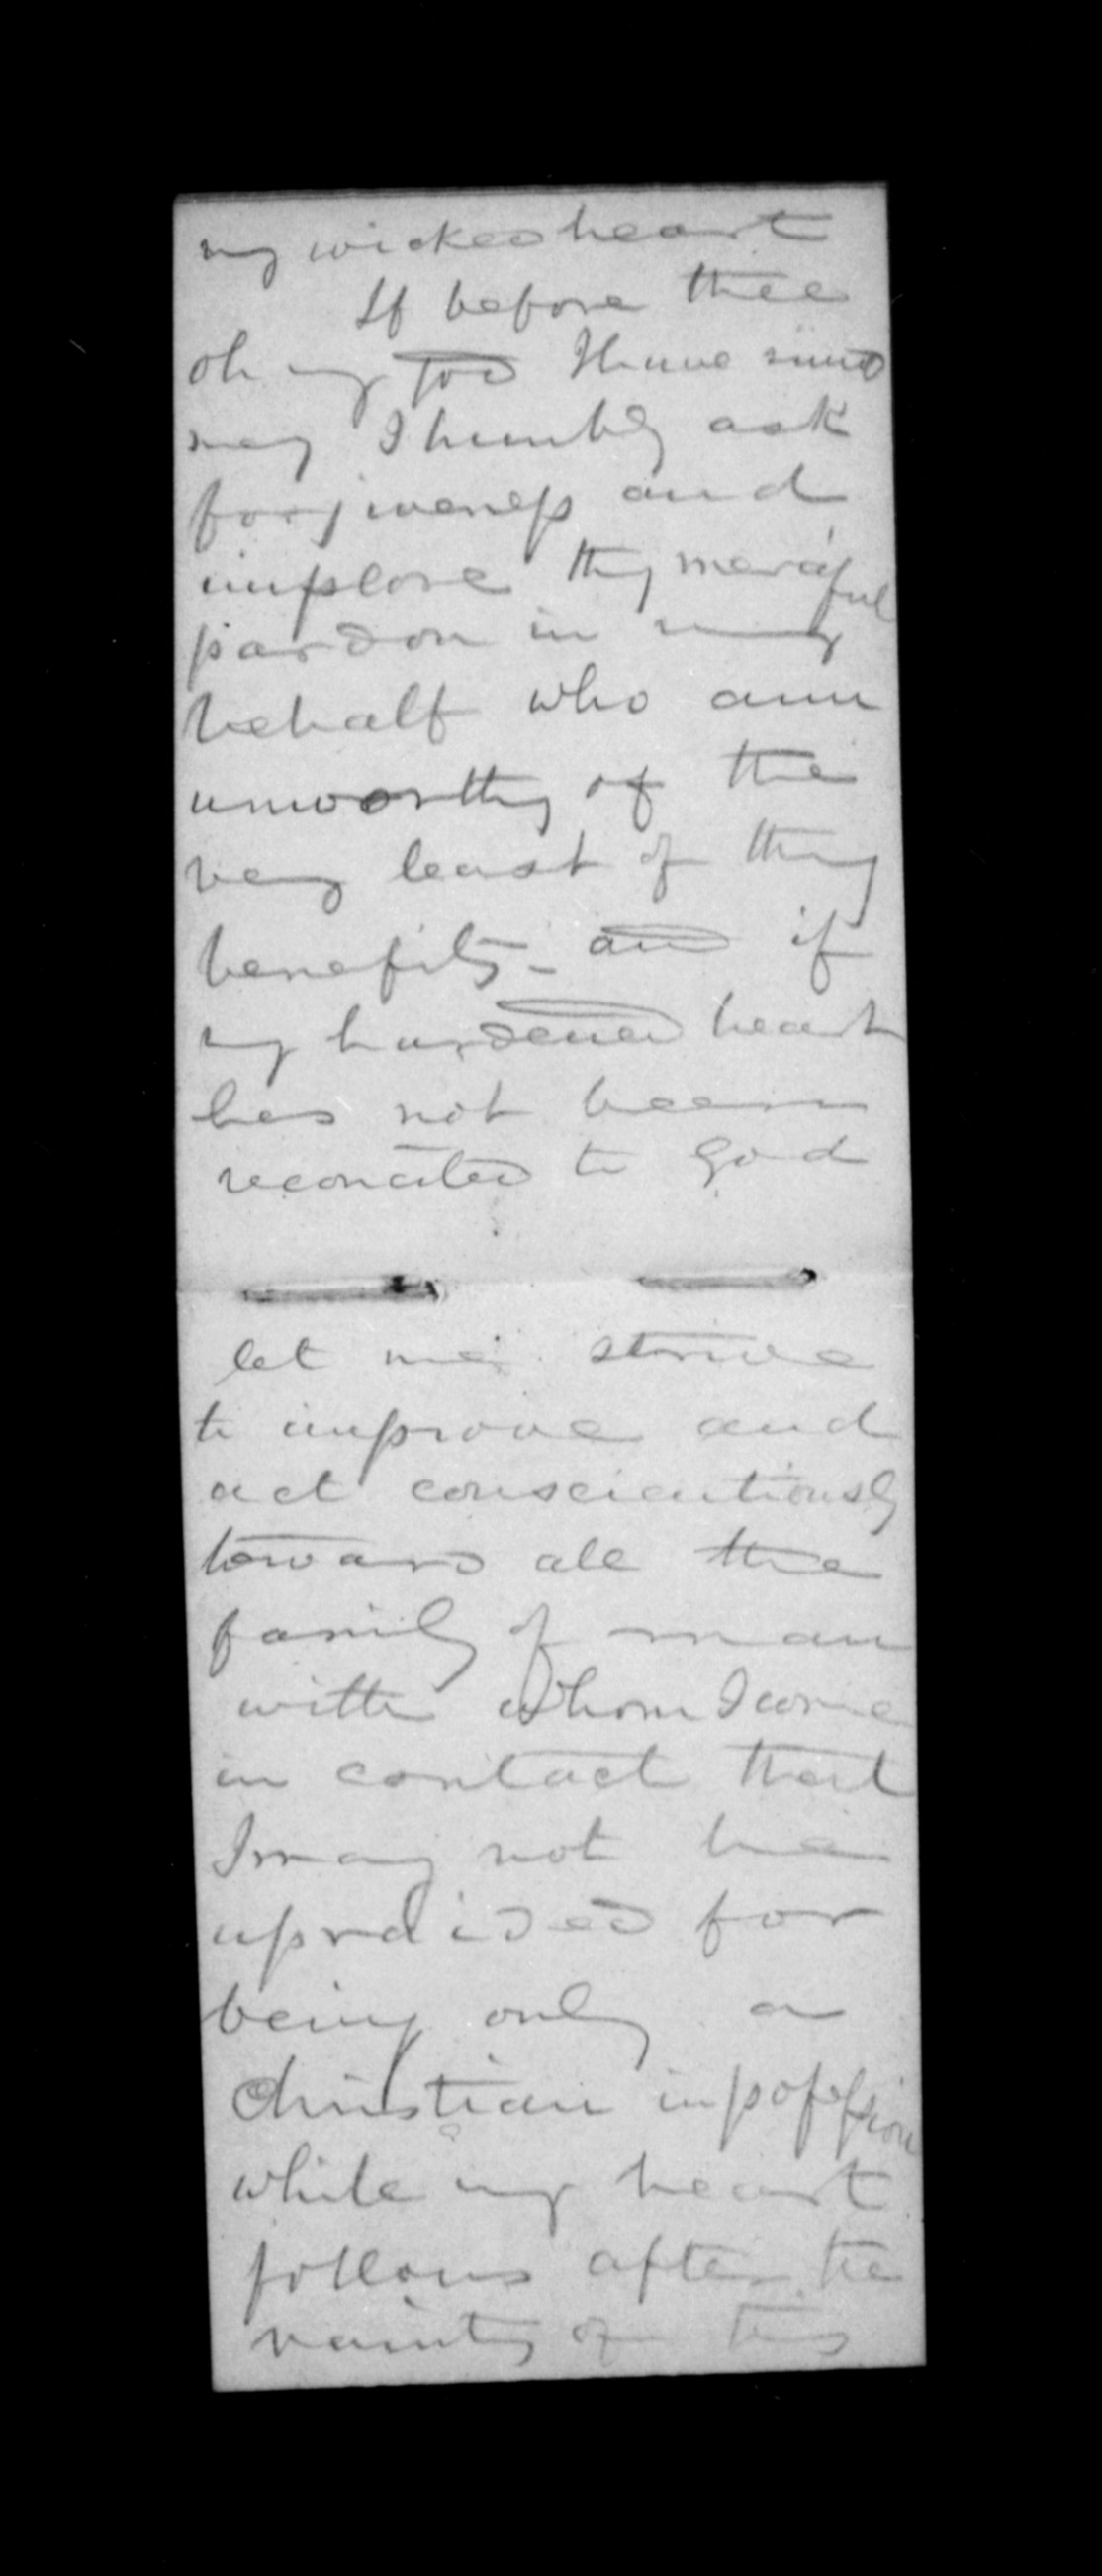 my wicked heart
If before thee
oh my God I have sined
may I humbly ask
forgiveness and
implore thy merciful
pardon in my
behalf who am
unworthy of the
very least of thy
benefits - and if
my hardened heart
has not been
reconciled to God
let me strive
to improve and
act conscientiously
toward all the
family of man
with whom I come
in contact that
I may not be
upraided for
being only a
Christian in
while my heart
follows after the
vainity of this